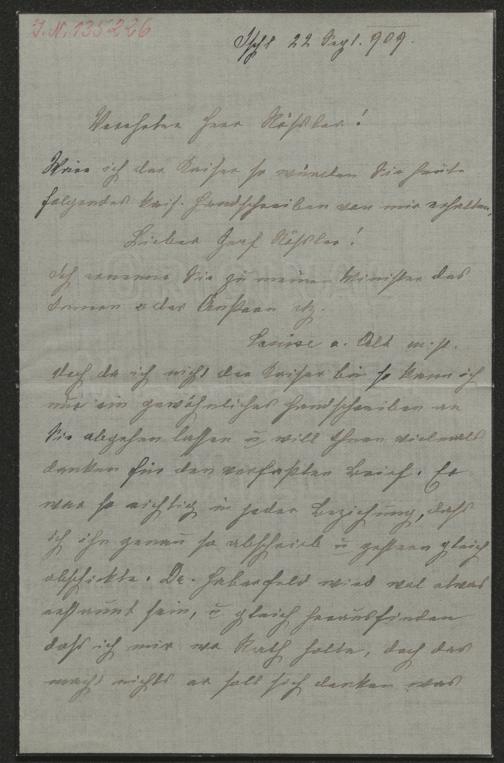 J.N. 135226
Ischl 22 Sept. 909.
Verehrter Herr Rößler!
Wäre ich der Kaiser so würden Sie heute
folgendes kais. Handschreiben von mir erhalten.
Lieber Graf Rößler!
Ich ernenne Sie zu meinen Minister des
Innern u des Äußern etz.
Louise v. Alt m.p.
doch da ich nicht der Kaiser bin so kann ich
nur ein gewöhnliches Handschreiben an
Sie abgehen lassen u will Ihnen vielmals
danken für den verfaßten Brief. Er
war so richtig in jeder Beziehung, daß
ich ihn genau so abschrieb u gestern gleich
abschikte. Dr. Haberfeld wird wol etwas
erstaunt sein, u gleich herausfinden
daß ich mir wo Rath holte, doch das
macht nichts er soll sich denken was